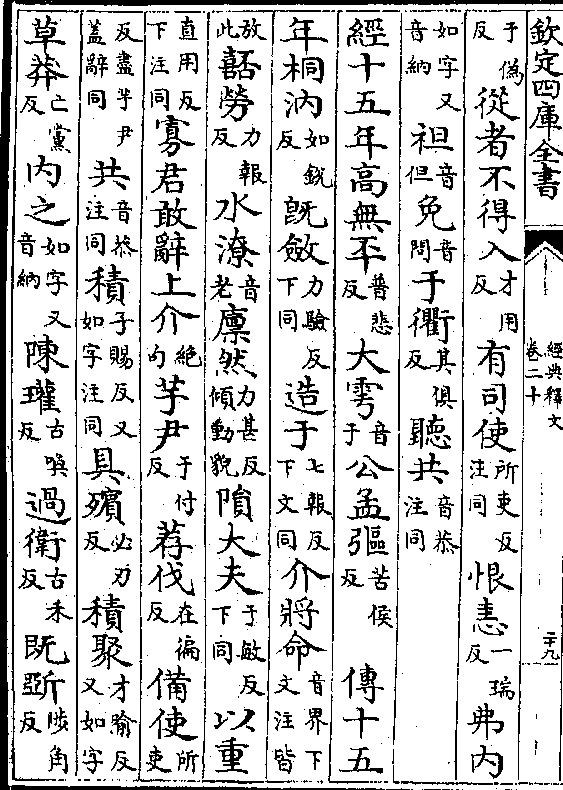 欽定四庫全書
經典釋文
卷二十
二十九
于偽反從者不得入才用反有司使所吏反注同恨恚一瑞反弗內
如字又音納袒音但免音問于衢其俱反聽共音恭注同
經十五年高無㔻普悲反大雩音于公孟彄苦侯反傳十五
年桐汭如銳反旣斂力驗反下同造于七報反下文同介將命音界下文注皆
放此嚭勞力報反水潦音老廩然力甚反傾動貌隕大夫于敏反下同以重
直用反下注同寡君敢辭上介絕句芋尹于付反荐伐在徧反備使所吏
反盡芋尹蓋辭同共音恭注同積子賜反又如字注同具殯必刃反積聚才喻反又如字
草莽亡黨反內之如字又音納陳瓘古喚反過衛古禾反既斲陟角反